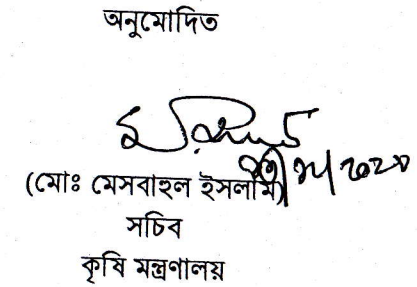 অনুমোদিত
(মোঃ মেসবাহুল ইসলাম)
সচিব
কৃষি মন্ত্রণালয়